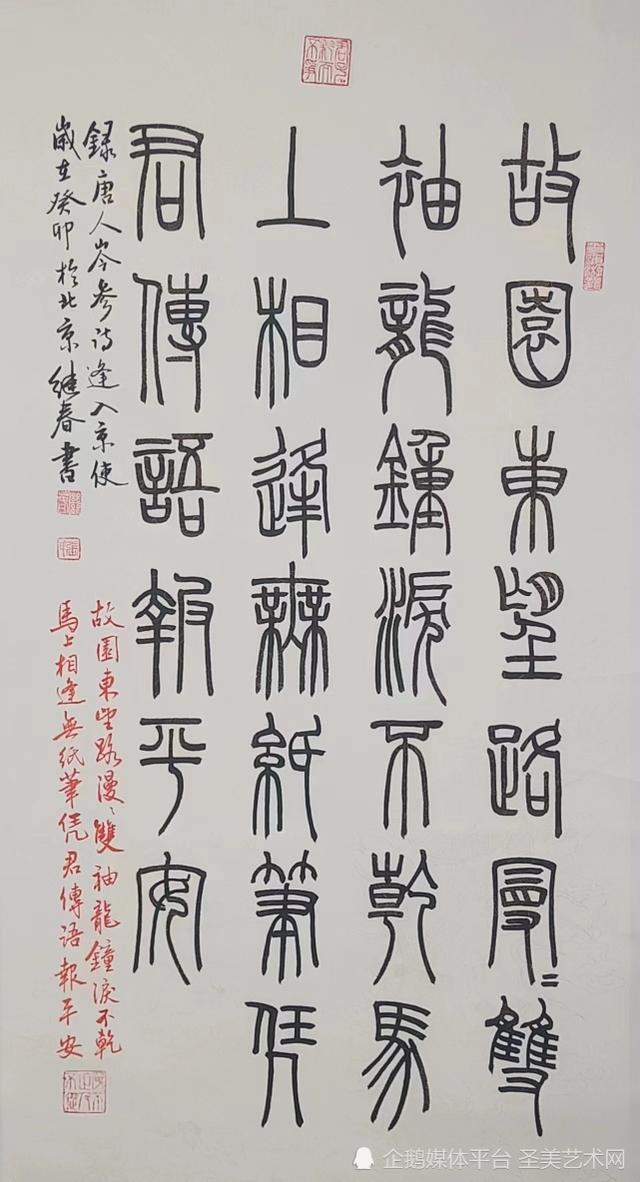 故園東望路曼〻雙
袖龍鐘淚不乾馬
上相逢無紙筆凭
君傳語報平安
錄唐人岑參詩逢入京使
歲在癸卯於北京继春書
故園東望路漫〻雙袖龍鐘淚不乾
馬上相逢無紙筆凭君傳語報平安
企鹅媒体平台 圣美艺术网